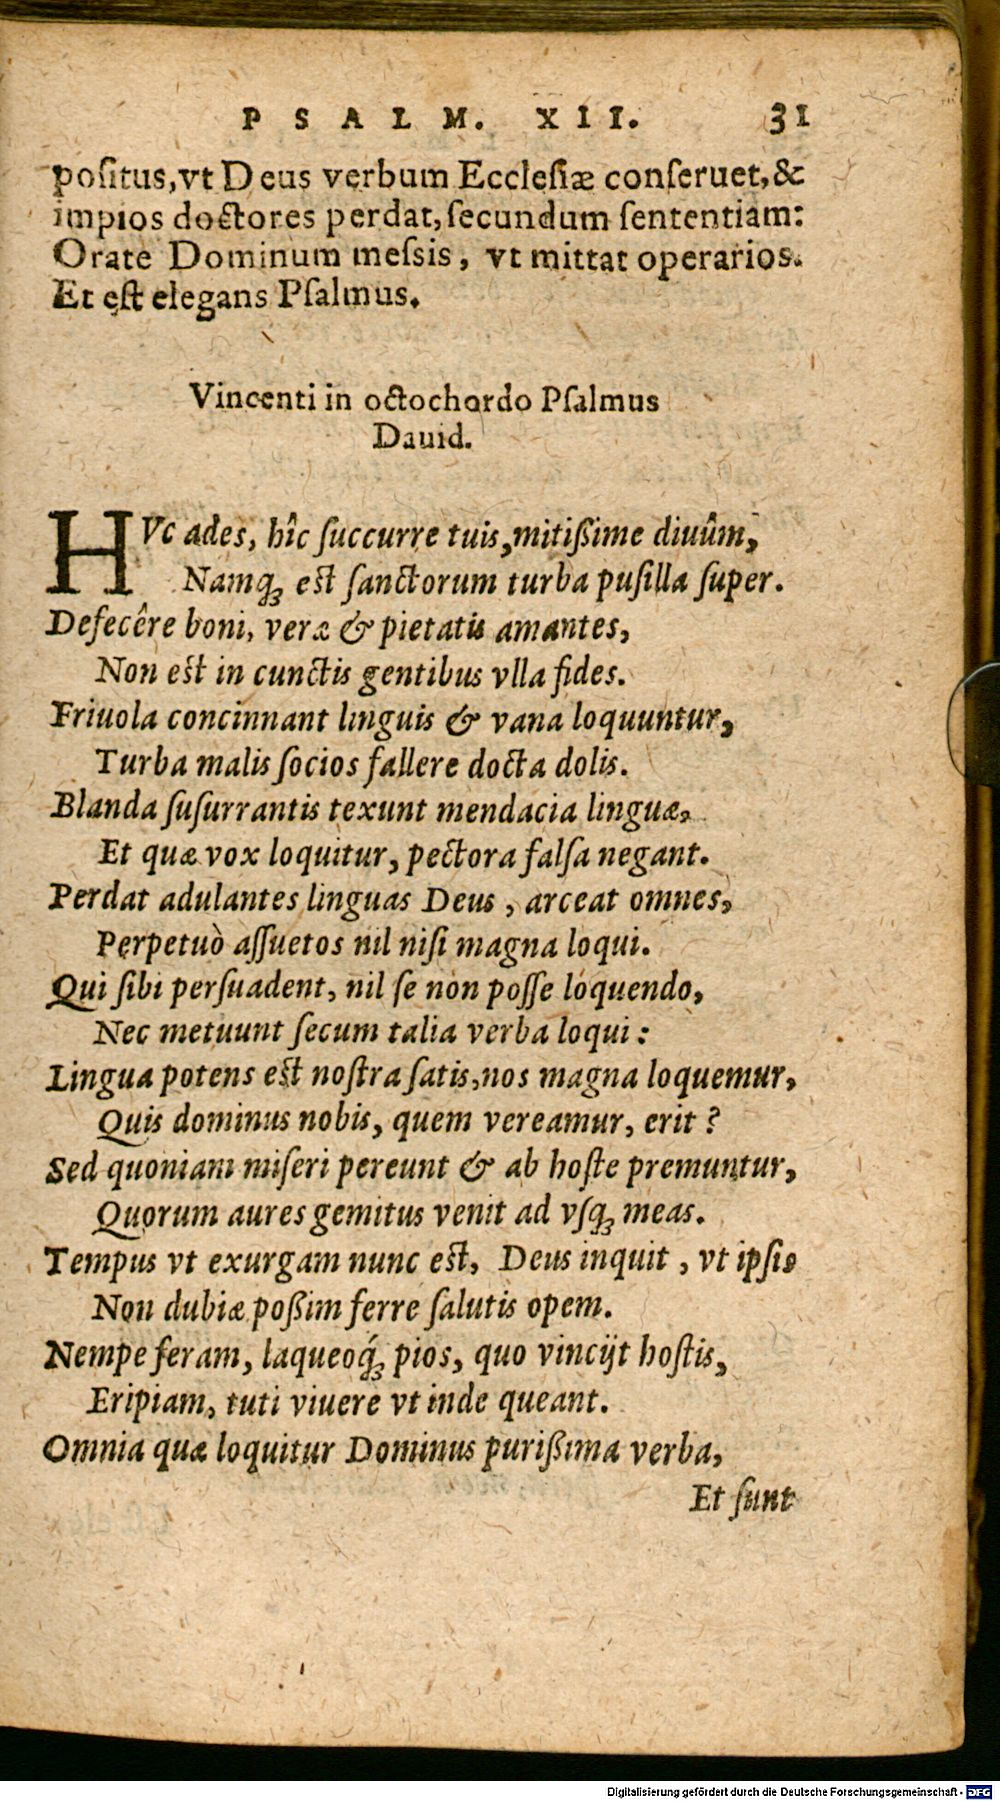 PSALM. XII. 31
poſitus, vt Deus verbum Eccleſiæ conſeruet, &
impios doctores perdat, ſecundum ſententiam:
Orate Dominum meſsis, vt mittat operarios.
Et eſt elegans Pſalmus.
Vincenti in octochordo Pſalmus
Dauid.
HVc ades, hîc ſuccurre tuis, mitißime diuûm,
Namq́ꝫ eſt ſanctorum turba puſilla ſuper.
Defecêre boni, veræ & pietatis amantes,
Non eſt in cunctis gentibus vlla fides.
Friuola concinnant linguis & vana loquuntur,
Turba malis ſocios fallere docta dolis.
Blanda ſuſurrantis texunt mendacia linguæ,
Et quæ vox loquitur, pectora falſa negant.
Perdat adulantes linguas Deus, arceat omnes,
Perpetuò aſſuetos nil niſi magna loqui.
Qui ſibi perſuadent, nil ſe non poſſe loquendo,
Nec metuunt ſecum talia verba loqui:
Lingua potens eſt noſtra ſatis, nos magna loquemur,
Quis dominus nobis, quem vereamur, erit?
Sed quoniam miſeri pereunt & ab hoſte premuntur,
Quorum aures gemitus venit ad vſqꝫ meas.
Tempus vt exurgam nunc eſt, Deus inquit, vt ipſis
Non dubiæ poßim ferre ſalutis opem.
Nempe feram, laqueoq́ꝫ pios, quo vincijt hoſtis,
Eripiam, tuti viuere vt inde queant.
Omnia quæ loquitur Dominus purißima verba,
Et ſunt
Digitalisierung gefördert durch die Deutsche Forschungsgemeinschaft - DFG